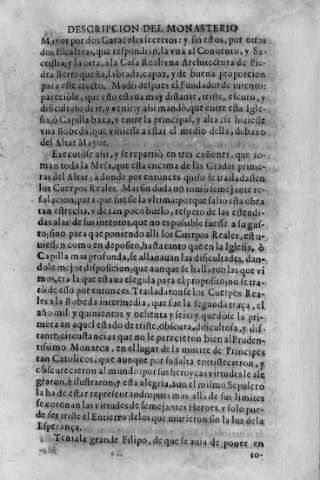 DESCRIPCION DEL MONASTERIO
Mayor por dos Caracoles secretos: y sin estos, por otras
dos Escaleras, que respondian, la vna al Conuento, y Sa-
cristia; y la otra, a la Casa Real; vna Architectura de Pie-
dra Berroqueña, labrada, capaz, y de buena proporcion
para este efecto. Mudò despues el Fundador de intento:
pareciòle, que esto estaua muy distante, triste, escuro, y
dificultoso de ir, y venir; y assi mandò, que entre esta Igle-
sia, ò Capilla baxa, y entre la principal, y alta, se hiziesse
vna Bobeda, que viniesse a estar el medio della, debaxo
del Altar Mayor.
Executòse assi, y se repartiò en tres cañones, que to-
man toda la Mesa, que està encima de las Gradas prime-
ras del Altar, adonde por entonces quiso se trasladassen
los Cuerpos Reales. Mas sin duda no tomò semejante re-
solacion, para que fuesse la vltima: porque saliò esta obra
tan estrecha, y de tan poco buelo, respeto de las estendi-
das alas de sus intentos, que no es possible fuesse a su gus-
to, sino para que poniendo alli los Cuerpos Reales, estu-
uiessen como en deposito, hasta tanto que en la Iglesia, ò
Capilla mas profunda, se allanauan las dificultades, dan-
dole mejor disposicion; que aunque se hallaron las que vi
mos, era la que estaua elegida para el proposito; no se tra-
tò de esso por entonces. Trasladaronse los Cuerpos Rea-
les a la Bobeda intermedia, que fue la segunda traça, el
año mil y quinientos y ochenta y seis; y quedòse la pri-
mera en aquel estado de triste, obscura, dificultosa, y dis-
tante; circunstancias que no le parecieron bien al Pruden-
tissimo Monarca, en el lugar de la muerte de Principes
tan Catolicos; que aunque por su falta entristecieron, y
obscurecieron al mundo: por sus heroycas virtudes le ale
graron, è ilustraron; y esta alegria, aun el mismo Sepulcro
la ha de estar representando: pues mas allà de sus limites
se coronan las virtudes de semejantes Heroes, y solo pue-
de ser triste el Entierro de los que murieron sin la luz de la
Esperança.
Teniala grande Filipo, de que se auia de poner en